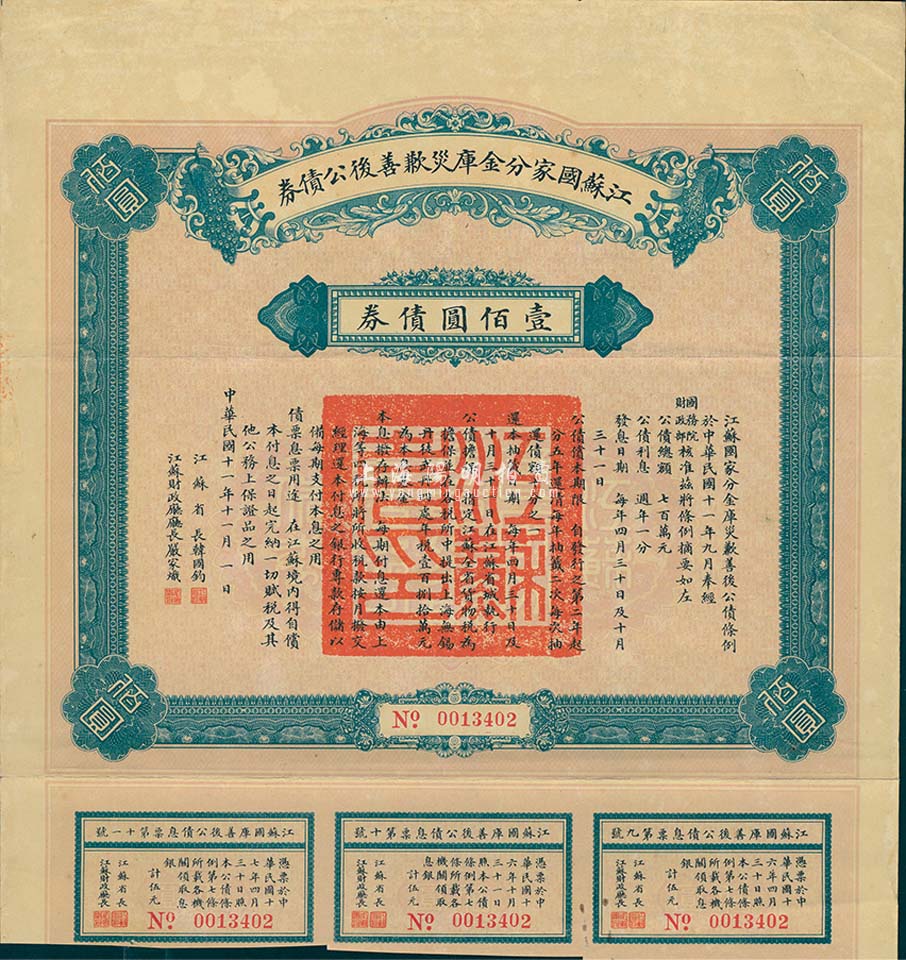 江蘇國家分金庫災歉善後公債券
佰圓
佰圓
壹佰圓債券
江蘇國家分金庫災歉善後公債條例
於中華民國十一年九月奉經
國務院財政部核准茲將條例摘要如左
公債總額 七百萬元
公債利息 週年一分
發息日期 每年四月三十日及十月
三十一日
公債債本期限 自發行之第二年起
分五年還清每年抽籤二次每次抽
還債額十分之一
還本抽籤日期 每年四月三十日及
十月三十一日在江蘇省城執行
公債擔保 指定江蘇全省貨物稅為
擔保並在各稅所中提出上海無錫
丹徒 四處年稅壹百捌拾萬元
為本息基金
本息撥存辦法 每期付息還本由上
海等四稅所將所收稅款按月撥交
經理還本付息之銀行專款存儲以
備每期支付本息之用
債票息票用途 在江蘇境內得自償
本付息之日起完納一切賦稅及其
他公務上保證品之用
江蘇省長韓國鈞
江蘇財政廳廳長嚴家熾
中華民國十一年十一月一日
上海陽明拍賣
www.yangmingauction.com
佰圓
佰圓
No. 0013402
江蘇國庫善後公債息票第九號
憑票於中
華民國十
六年四月
三十日照
本公債條
例第七條
所載各機
關領取息
銀
計伍元
江蘇省長
江蘇財政廳長
No. 0013402
江蘇國庫善後公債息票第十號
憑票於中
華民國十
六年十月
三十一日
照本公債
條例第七
條所載各
機關領取
息銀
計伍元
江蘇省長
江蘇財政廳長
No. 0013402
江蘇國庫善後公債息票第十一號
憑票於中
華民國十
七年四月
三十日照
本公債條
例第七條
所載各機
關領取息
銀
計伍元
江蘇省長
江蘇財政廳長
No. 0013402